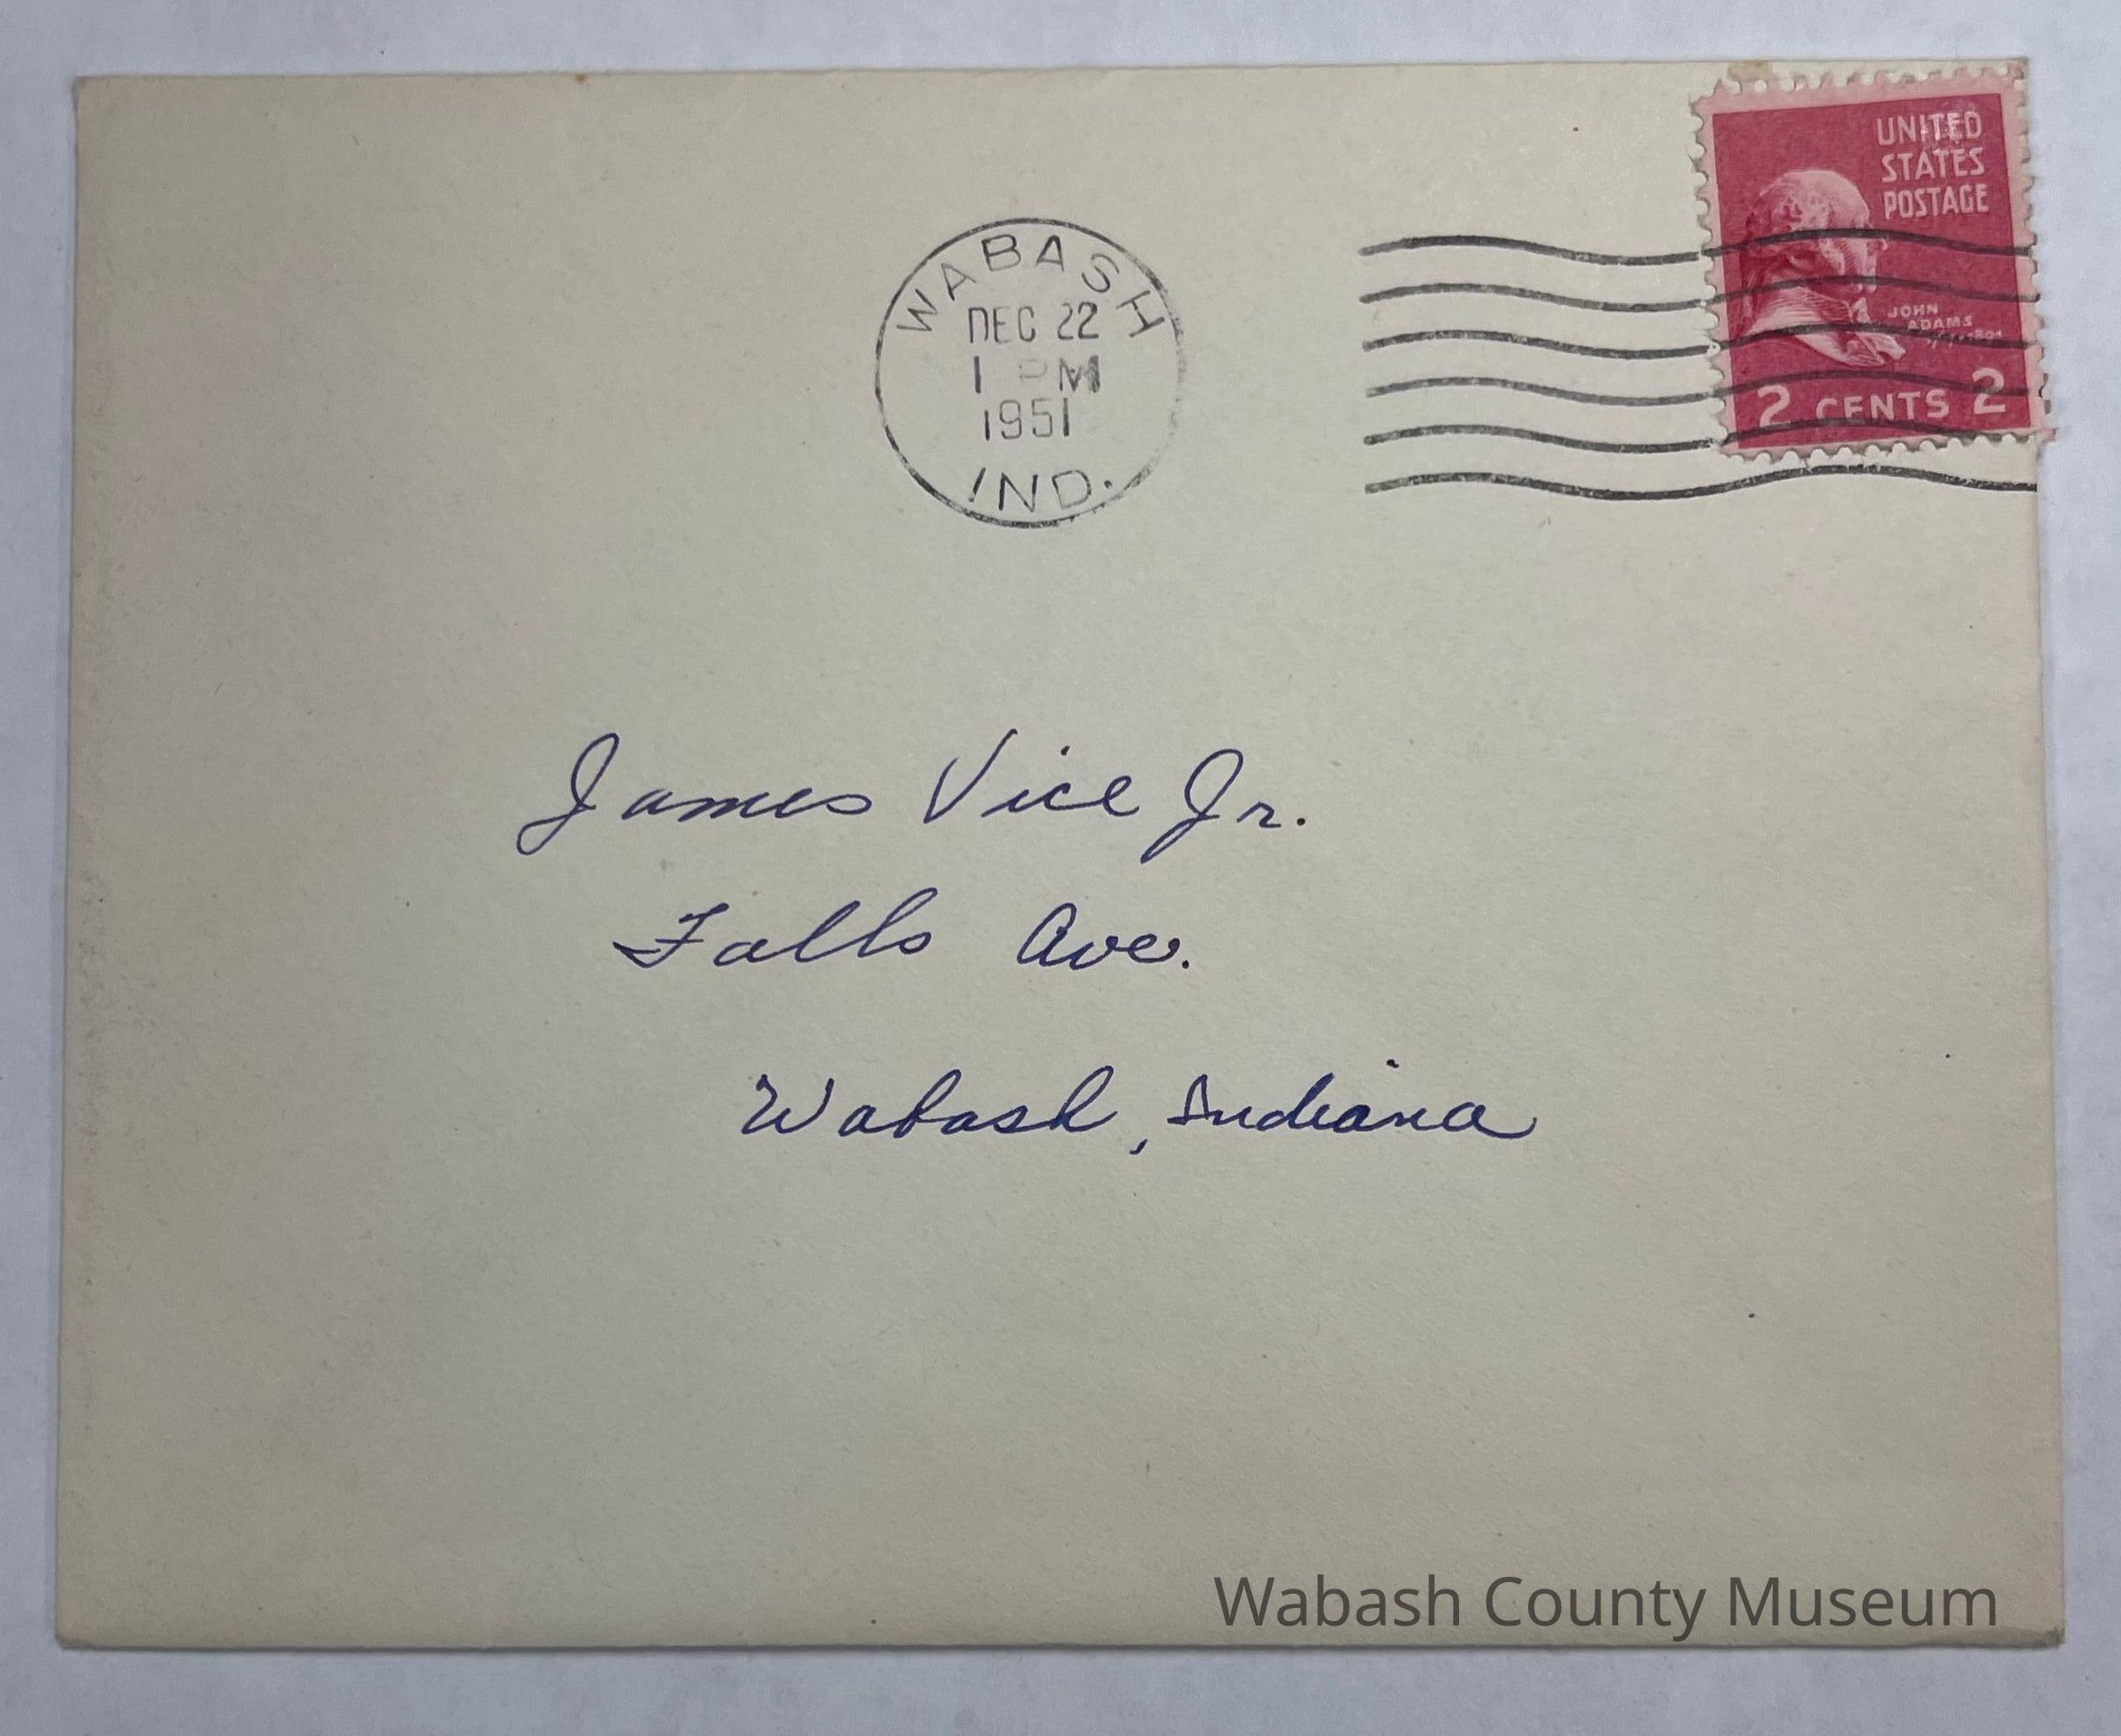 UNITED
STATES
POSTAGE
JOHN
ADAMS
2 CENTS 2
WABASH
DEC 22
1 PM
1951
IND.
James Vice Jr.
Falls Ave.
Wabash, Indiana
Wabash County Museum